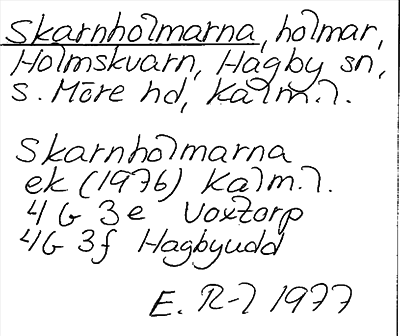 Skarnholmarna, holmar,
Holmskvarn, Hagby sn,
S. Möre hd, Kalm.l.
Skarnholmarna
ek (1976) Kalm.l.
4 G 3e Voxtorp
4G 3f Hagbyudd
E. R-l 1977